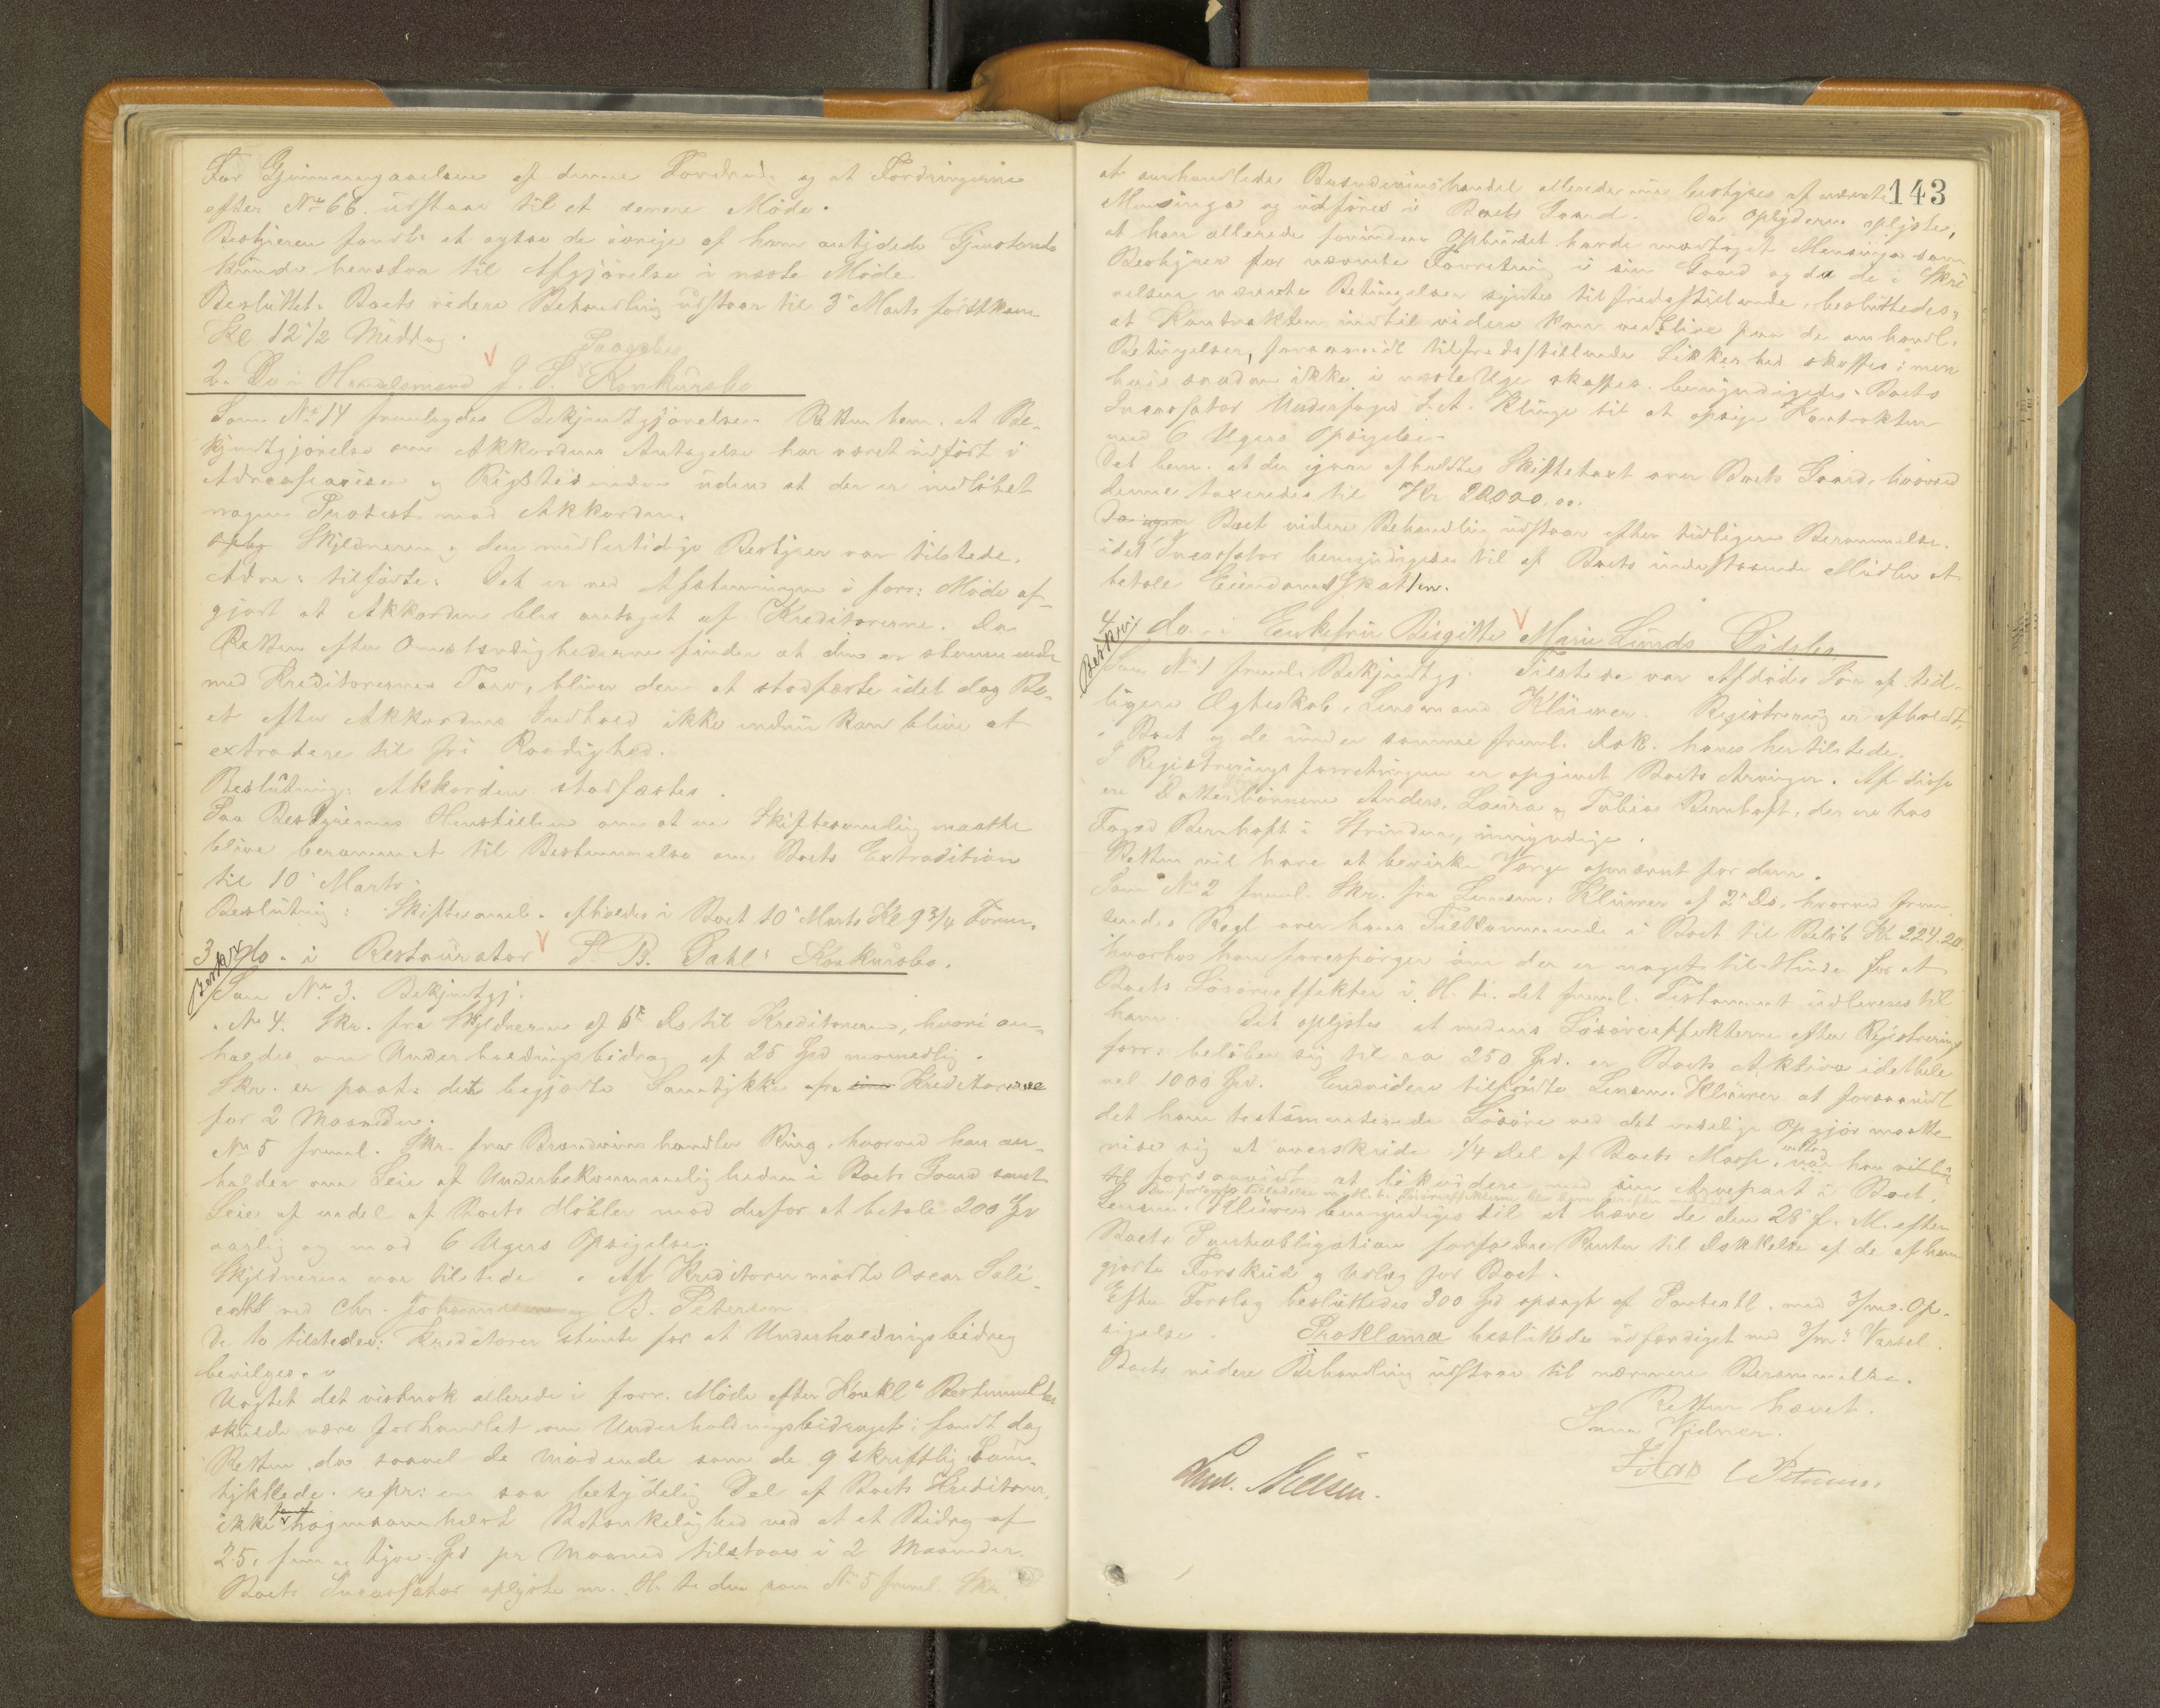 For Gjennemgaaelsen af denne Fordring og at Fordringerne
efter No 66. udstaar til et senere Möde.
Bestyreren fandt at ogsaa de övrige af ham antydede Gjenstande
kunde henstaa til Afgjörelse i næste Möde.
Besluttet. Boets videre Behandling udstaar til 3' Marts förstkom.
Kl 12 1/2 Middag.
2. Do i Handelsmand J. S. Konkursbo
Som No 14 fremlagdes Bekjendtgjörelse. Retten bem. at Be-
kjendtgjörelse om Akkordens Antagelse har været indfört i
Adresseavisen og Rigstidenden uden at der er indlöbet
nogen Protest mod Akkorden.
Skyldneren og den midlertidige Bestyrer var tilstede.
tilförte: Det er ved Afstemningen i forr: Möde af-
gjort at Akkorden blev antaget af Kreditorerne. Da
Retten efter Omstændighederne finder at den er stemmende
med Kreditorernes Tarv, bliver den at stadfæste idet dog Bo-
et efter Akkordens Indhold ikke endnu kan blive at
extradere til fri Raadighed.
Beslutning: Akkorden stadfæstes.
Paa Bestyrerens Henstillen om at en Skiftesamling maatte
blive berammet til Bestemmelse om Boets Extradition
til 10' Marts.
Beslutning: Skiftesaml. afholdes i Boet 10' Marts Kl 9 3/4 Form.
3. do. i Restauratör P. B. Dahls Konkursbo.
Som No. 3. Bekjendtgj.
" No 4. Skr. fra Skyldneren af 6' Ds til Kreditorerne, hvori an-
holdes om Underholdningsbidrag af 25 Kr maanedlig.
Skr. er paat. det begjærte Samtykke fra Kreditorerne
for 2 Maaneder.
No 5 freml. Skr. fra Brændevinshandler Ring, hvorved han an-
holder om Leie af Underbekvemmeligheden i Boets Gaard samt
Leie af endel af Boets Möbler mod derfor at betale 200 Kr
aarlig og mod 6 Ugers Opsigelse.
Skyldneren var tilstede. Af Kreditorer mödte Oscar
ved Chr. Johannessen og B. Petersen.
De to tilstedev: Kreditorer stemte for at Underholdningsbidrag
bevilges.
Uagtet det vistnok allerede i forr. Möde efter Konkl' Bestemmelser
skulde være forhandlet om Underholdningsbidraget; fandt dog
Retten, da saavel de mödende som de 9 skriftlig Sam-
tykkede repr: en saa betydelig Del af Boets Kreditorer,
ikke nogensomhelst Betænkelighed ved at et Bidrag af
25, fem og tyve Kr pr Maaned tilstaaes i 2 Maaneder.
Boets Incassator oplyste m. H. t. den som No 5 freml. Skr.
143
at omhandlede Brændevinshandel allerede nu bestyres af nævnte
og udföres i Boets Gaard. Da oplyste,
at han allerede forinden Opbudet havde modtaget som
Bestyrer for nævnte Forretning i sin Gaard og da de i Skri-
velsen nævnte Betingelser syntes tilfredsstillende, besluttedes,
at Kontrakten indtil videre kan vedblive paa de omhandl.
Betingelser, forsaavidt tilfredsstillende Sikkerhed skaffes; men
hvis saadan ikke i næste Uge skaffes, bemyndigedes Boets
Incassator Underfoged J. A. Klinge til at opsige Kontrakten
med 6 Ugers Opsigelse.
Det bem. at der igaar afholdtes Skiftetaxt over Boets Gaard, hvorved
denne taxeredes til Kr 22000.00.
Boet videre Behandling udstaar efter tidligere Berammelse,
idet Incassator bemyndiges til af Boets indestaaende Midler at
betale Eiendomsskatten.
4. do. i Enkefru Birgitte Marie Lunds Dödsbo
Som No 1 freml. Bekjendtgj. Tilstede var Afdödes Sön af tid-
ligere Ægteskab, Lensmand Klüwer. Registrering er afholdt
i Boet og de under samme freml. Dok. haves her tilstede.
I Registreringsforretningen er opgivet Boets Arvinger. Af disse
er Datterbörnene Anders, Laura og Tobias Bernhoft, der er hos
Foged Bernhoft i Strinden, umyndige.
Retten vil have at bevirke Værge opnævnt for dem.
Som No 2 freml. Skr. fra Lensm. Klüwer af 2' Ds, hvorved frem-
sendes Regl over hans Tilkommende i Boet til Belöb Kr 224.20
hvorhos han forespörger om der er noget til Hinder for at
Boets Lösöreeffekter i H. t. det freml. Testament udleveres til
ham. Det oplystes at medens Lösöreeffekterne efter Registrerings
forr: belöber sig til ca 250 Kr. er Boets Aktiva idethele
vel 1000 Kr. Endvidere tilförte Lensm. Klüwer at forsaavidt
det ham testamenterede Lösöre ved det endelige Opgjör maatte
vise sig at overskride 1/4 Del af Boets Masse, var han villig
til forsaavidt at likvidere med sin Arvepart i Boet.
Lensm. Klüwer bemyndiges til at hæve de den 28' f. M. efter
Boets Panteobligation forfaldne Renter til Dækkelse af de af ham
gjorte Forskud og Udlæg for Boet.
Efter Forslag besluttedes 300 Kr opsagt af Pantentl. med 3/mrs. Op-
sigelse. Proklama besluttedes udfærdiget med 3/m' Varsel.
Boets videre Behandling udstaar til nærmere Berammelse.
Retten hævet.
Som Vidner.
Petersen
Nielsen.